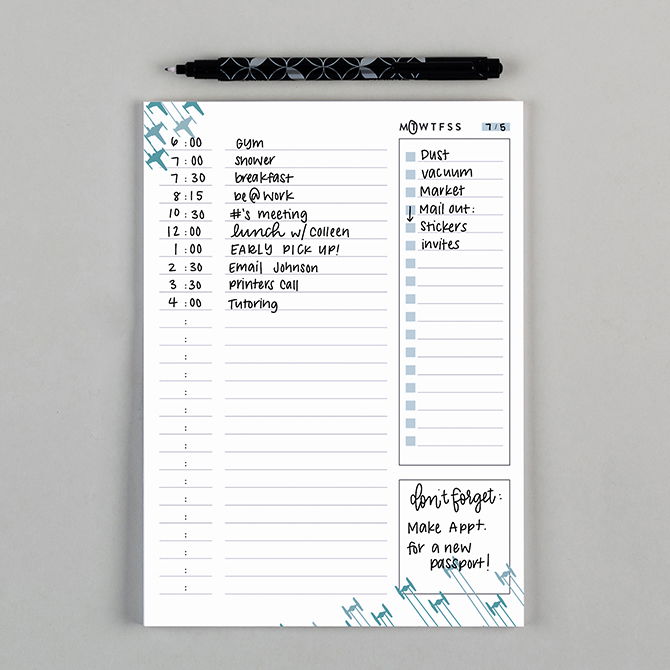 M T W T F S S 7/5
6:00 Gym
7:00 shower
7:30 breakfast
8:15 be@work
10:30 #'s meeting
12:00 lunch w/ Colleen
1:00 EARLY PICK UP!
2:30 Email Johnson
3:30 printers call
4:00 Tutoring
:
:
:
:
:
:
:
:
:
:
:
:
:
:
:
:
Dust
vacuum
Market
↓ Mail out:
Stickers
invites
don't forget:
Make Appt.
for a new
passport!